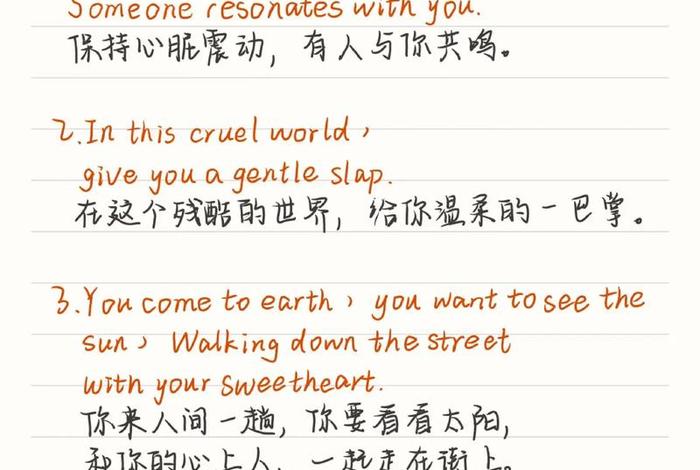 Someone resonates with you.
保持心脏震动，有人与你共鸣。
2.In this cruel world,
give you a gentle slap.
在这个残酷的世界，给你温柔的一巴掌。
3.You come to earth, you want to see the
sun, Walking down the street
with your sweetheart.
你来人间一趟，你要看看太阳，
和你的心上人，一起走在街上。